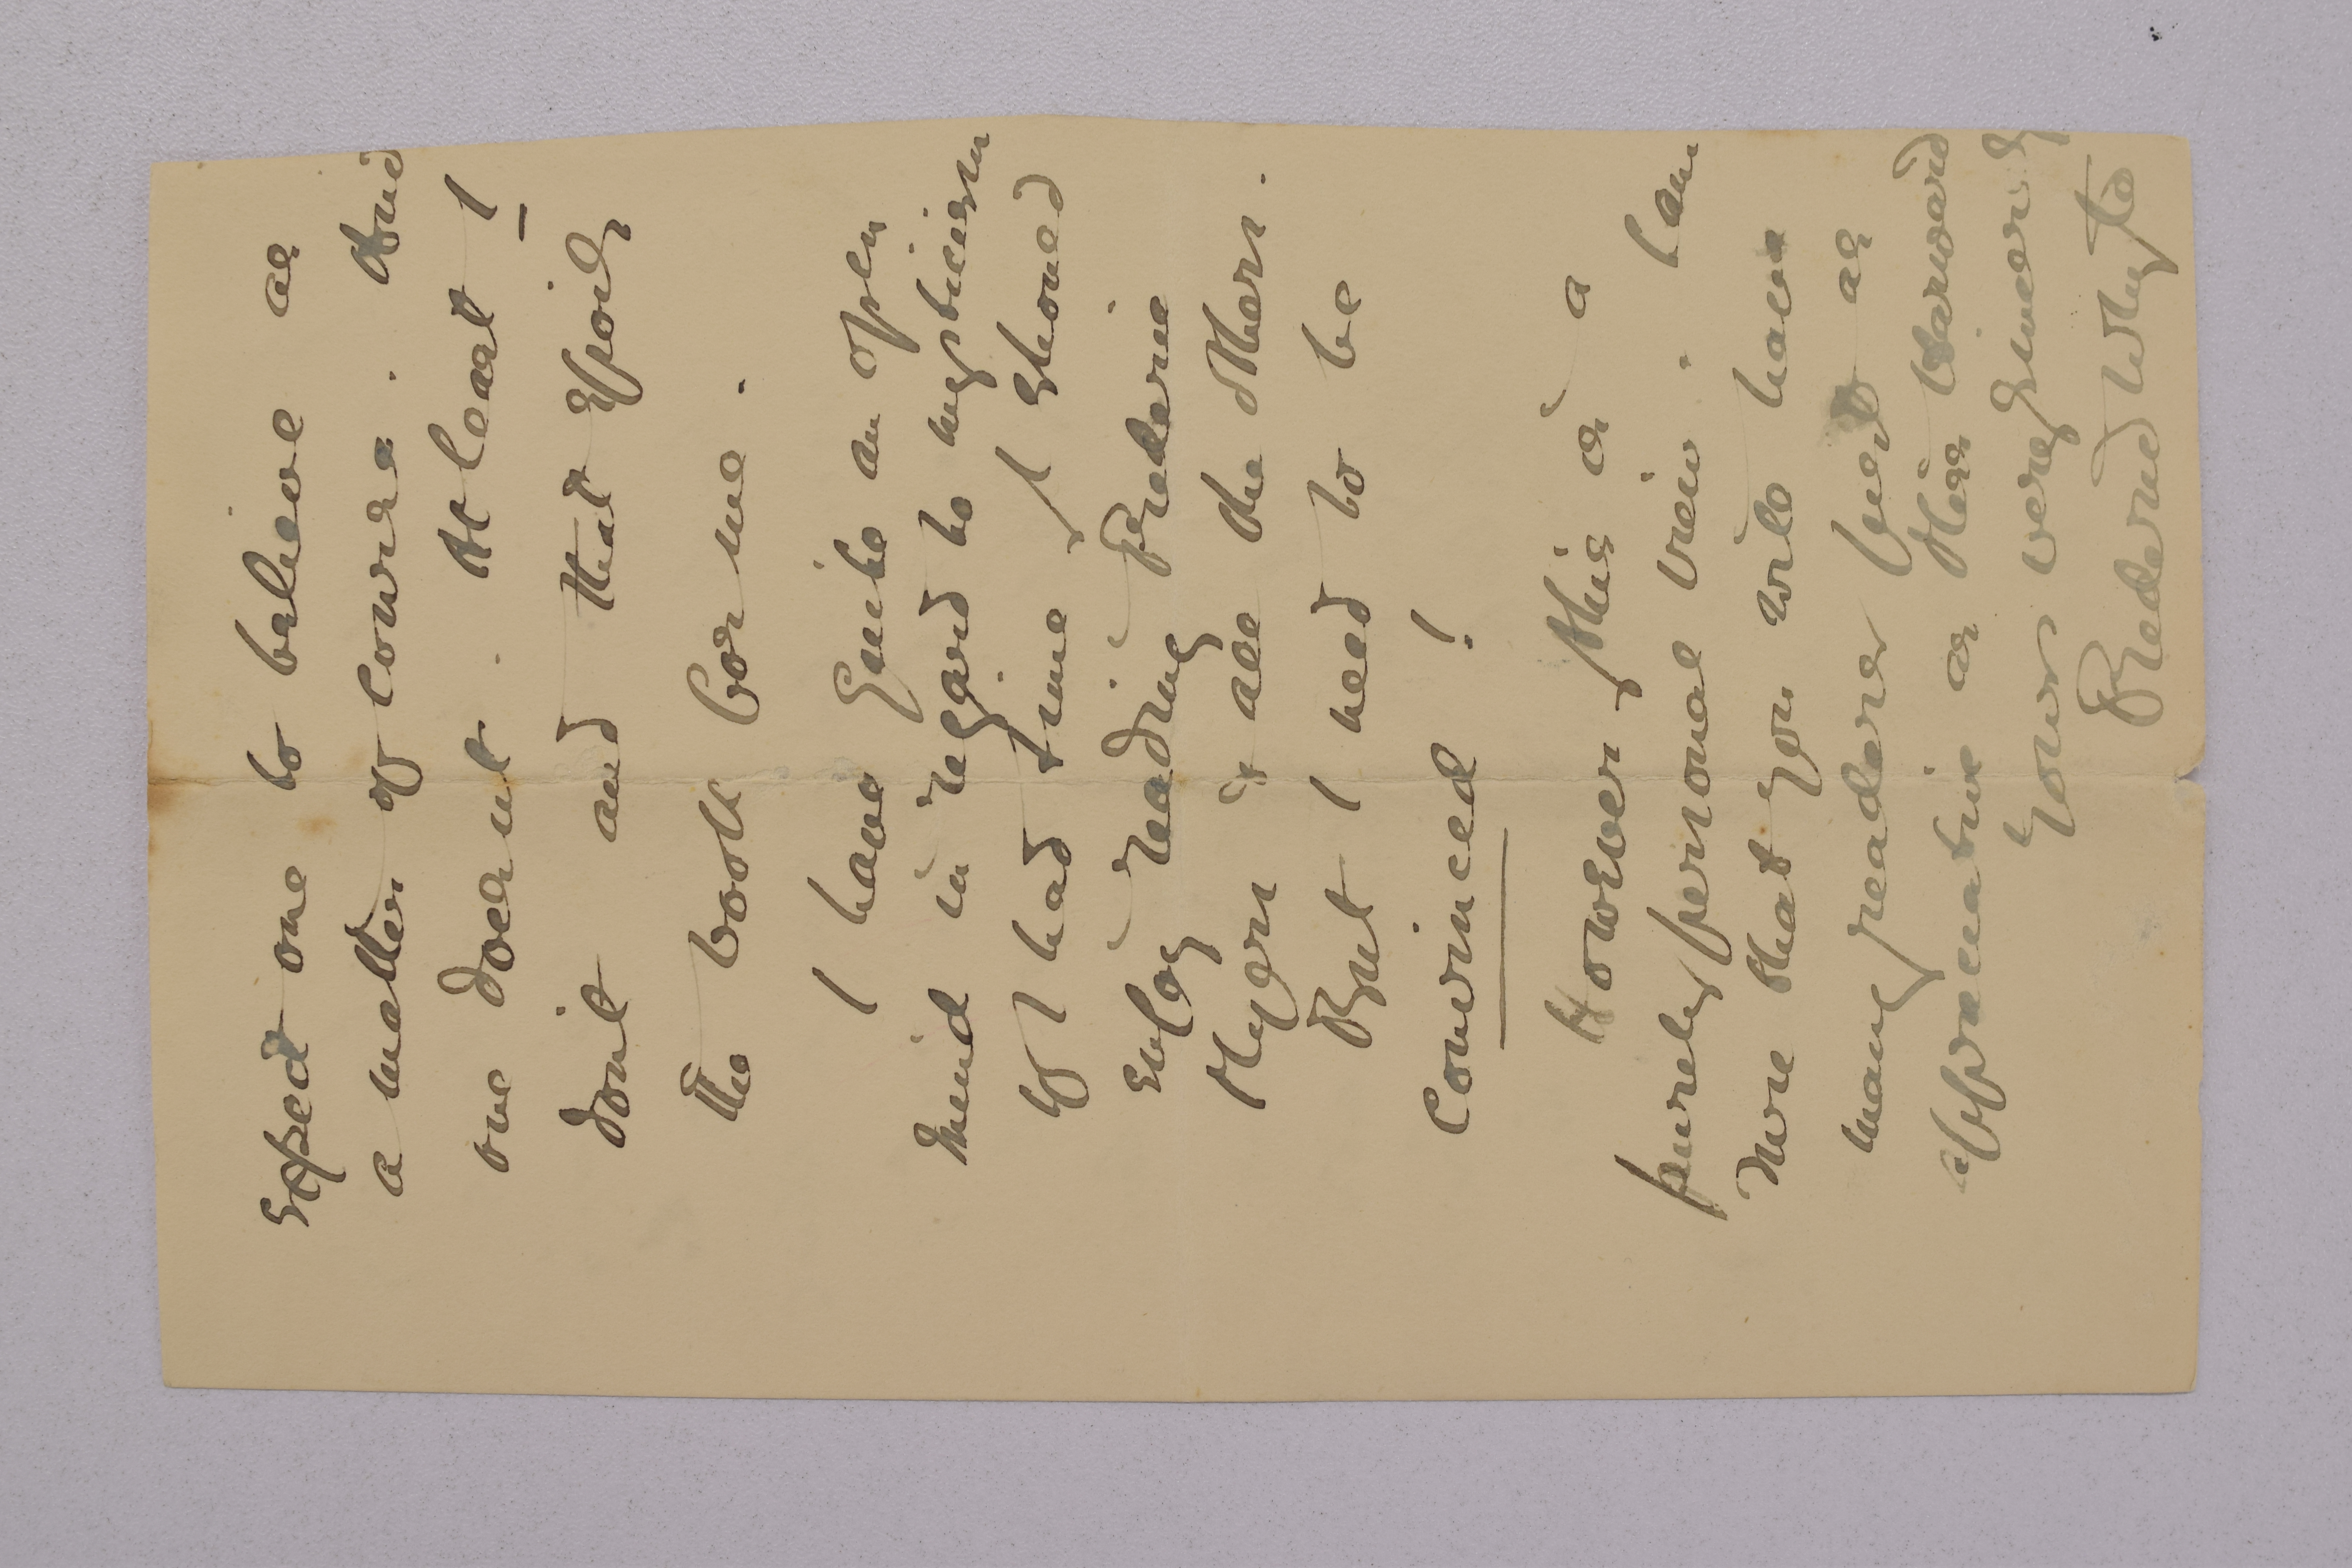 expect one to believe as
a matter of course. And
one doesnt. At least I
dont and that spoils
the book for me.
I have quite an open
mind in regard to mysticism
If I had time, I should
enjoy reading Frederic
Myers & all the others.
But I need to be
convinced!
However, this is a
purely personal view. I am
sure that you will have
many readers just as
appreciative as Miss
Yours very sincerely
Frederic